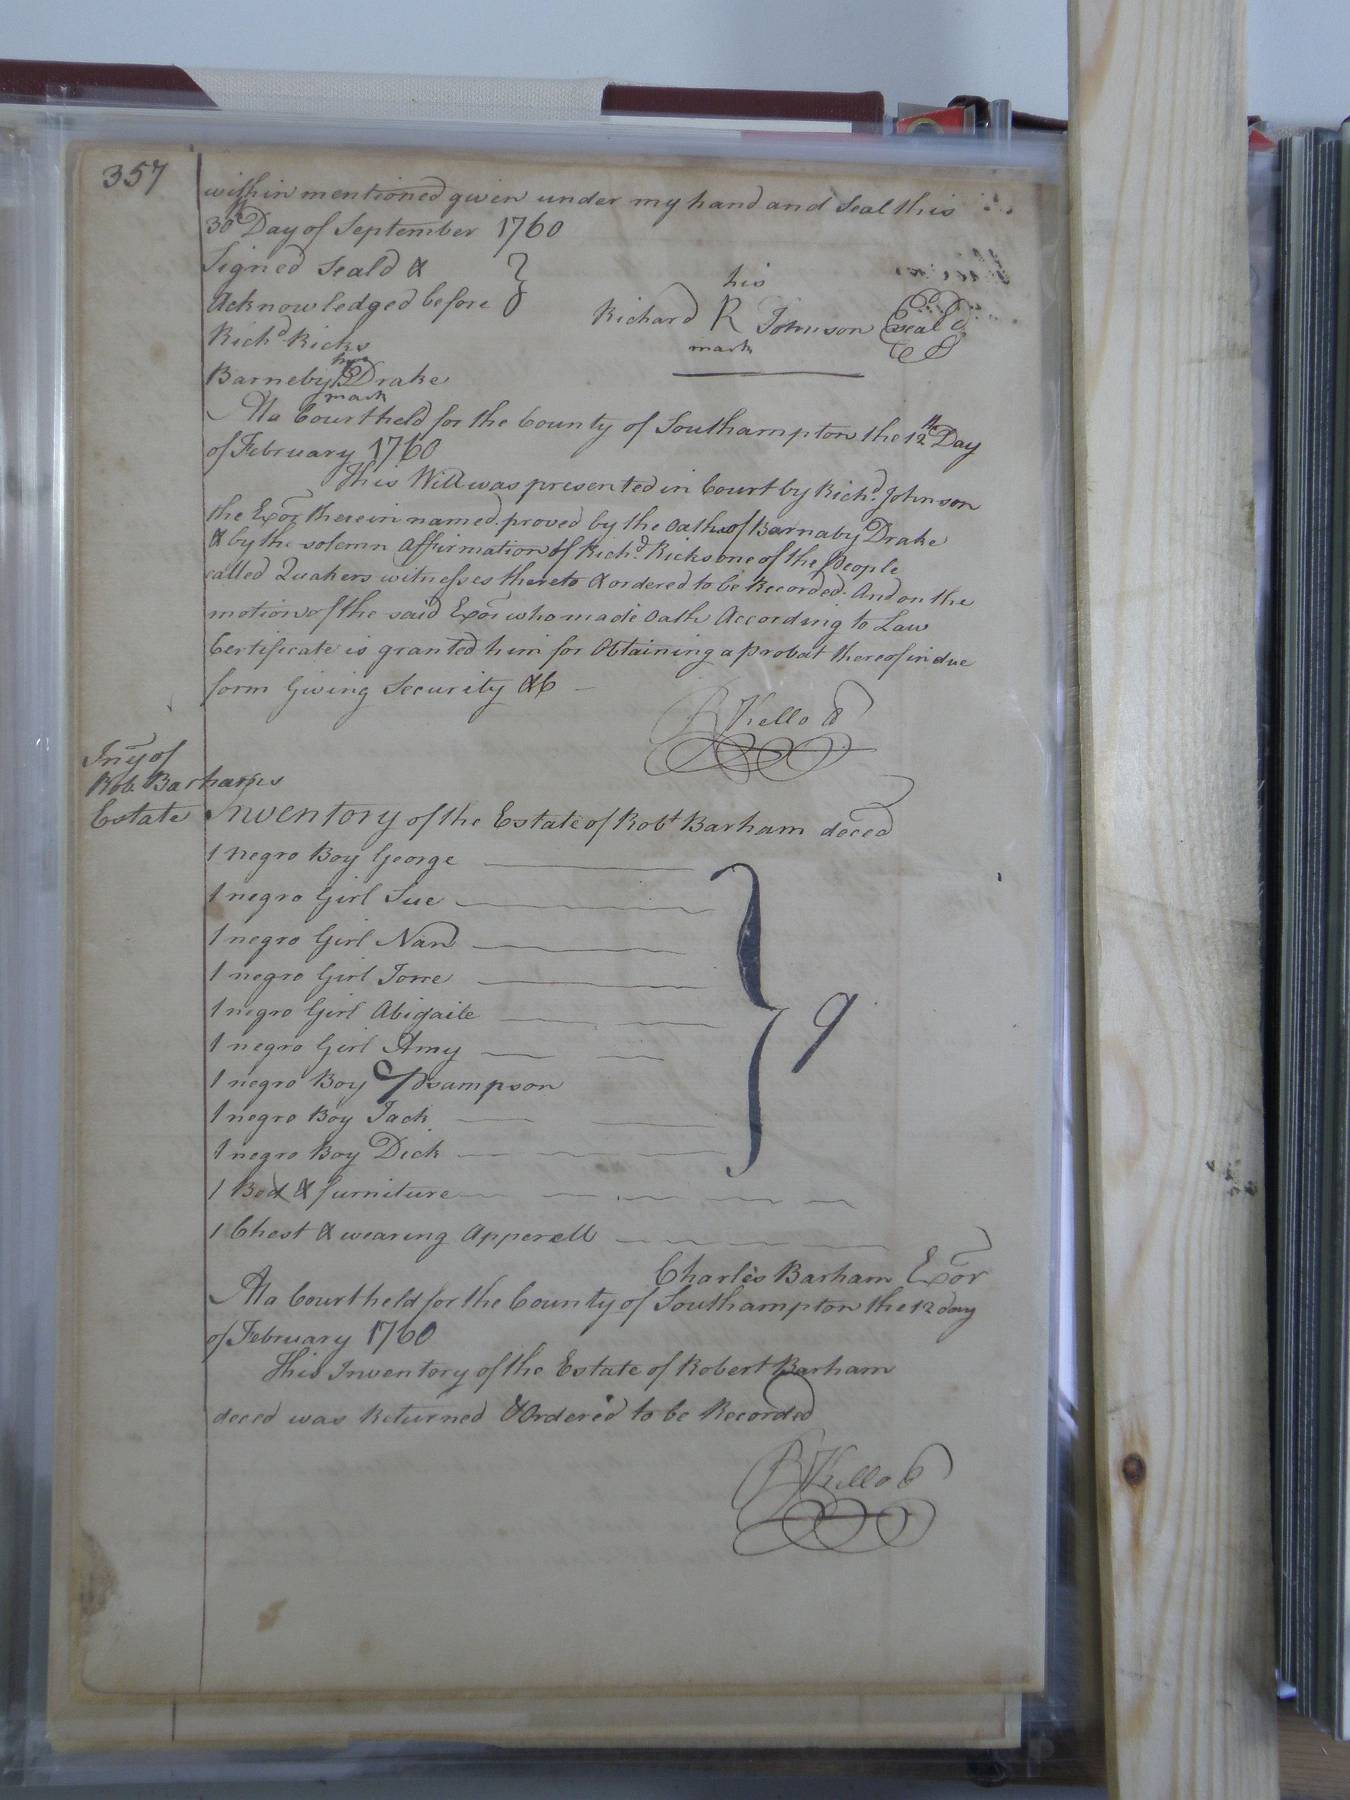 357
within mentioned given under my hand and Seal this
30th Day of September 1760
Signed Seald &
Acknowledged before
his
Richard R Johnson Seal
mark
Richd Ricks
his
Barneby B Drake
mark
At a Court held for the County of Southampton the 12th Day
of February 1760
This Will was presented in Court by Richd. Johnson
the Exor therein named proved by the oath of Barnaby Drake
& by the solemn Affirmation of Richd. Ricks one of the People
called Quakers witnesses thereto & ordered to be Recorded. And on the
motion of the said Exor who made oath According to Law
Certificate is granted him for Obtaining a probat thereof in due
form Giving Security &C
R Kello C
Iny of
Rob. Barhams
Estate
Inventory of the Estate of Robt Barham deced
1 negro Boy George
1 negro Girl Sue
1 negro Girl Nan
1 negro Girl
1 negro Girl Abigaile
1 negro Girl Amy
1 negro Boy sampson
1 negro Boy Jack
1 negro Boy Dick
9
1 Bed & furniture
1 Chest & wearing Apperell
Charles Barham Exor
At a Court held for the County of Southampton the 12 day
of February 1760
This Inventory of the Estate of Robert Barham
deced was Returned & Ordered to be Recorded
R Kello C